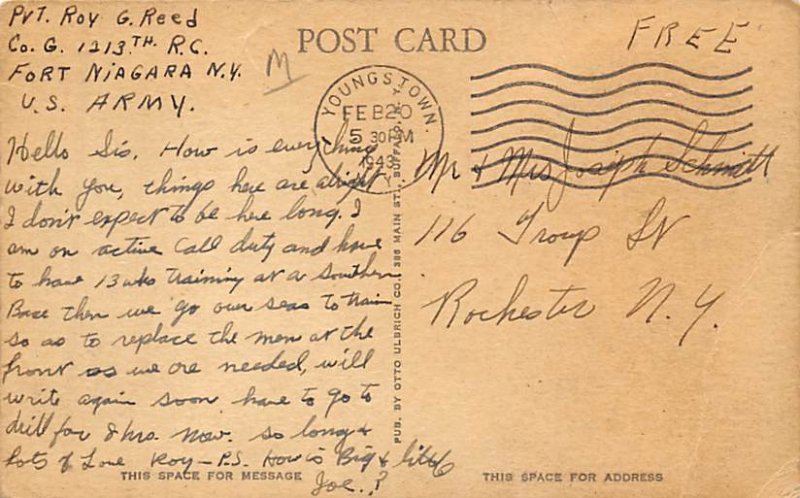 Pvt. Roy G. Reed
Co. G. 1213TH. R.C.
FORT NIAGARA N.Y.
U.S. ARMY.
M
POST CARD
FREE
YOUNGSTOWN.
FEB 20
5 30 PM
1943
N.Y.
Hello Sis. How is everything
with you, things here are alright
I don't expect to be here long. I
am on active call duty and have
to have 13 wks training at a Southern
Base then we go over seas to train
so as to replace the men at the
front as we are needed, will
write again soon have to go to
drill for 2 hrs. now. so long &
lots of Love Roy - P.S. How is Big & little
Joe.?
PUB. BY OTTO ULBRICH CO., 386 MAIN ST., BUFFALO, N.Y.
Mr & Mrs Joseph Schmitt
116 Troup St
Rochester N.Y.
THIS SPACE FOR MESSAGE
THIS SPACE FOR ADDRESS